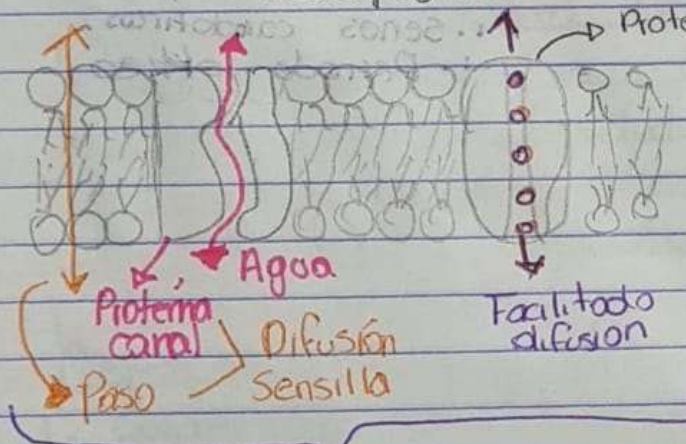 Prote
Agua
Proteína
canal
Difusión
Sensilla
Paso
Facilitado
difusion